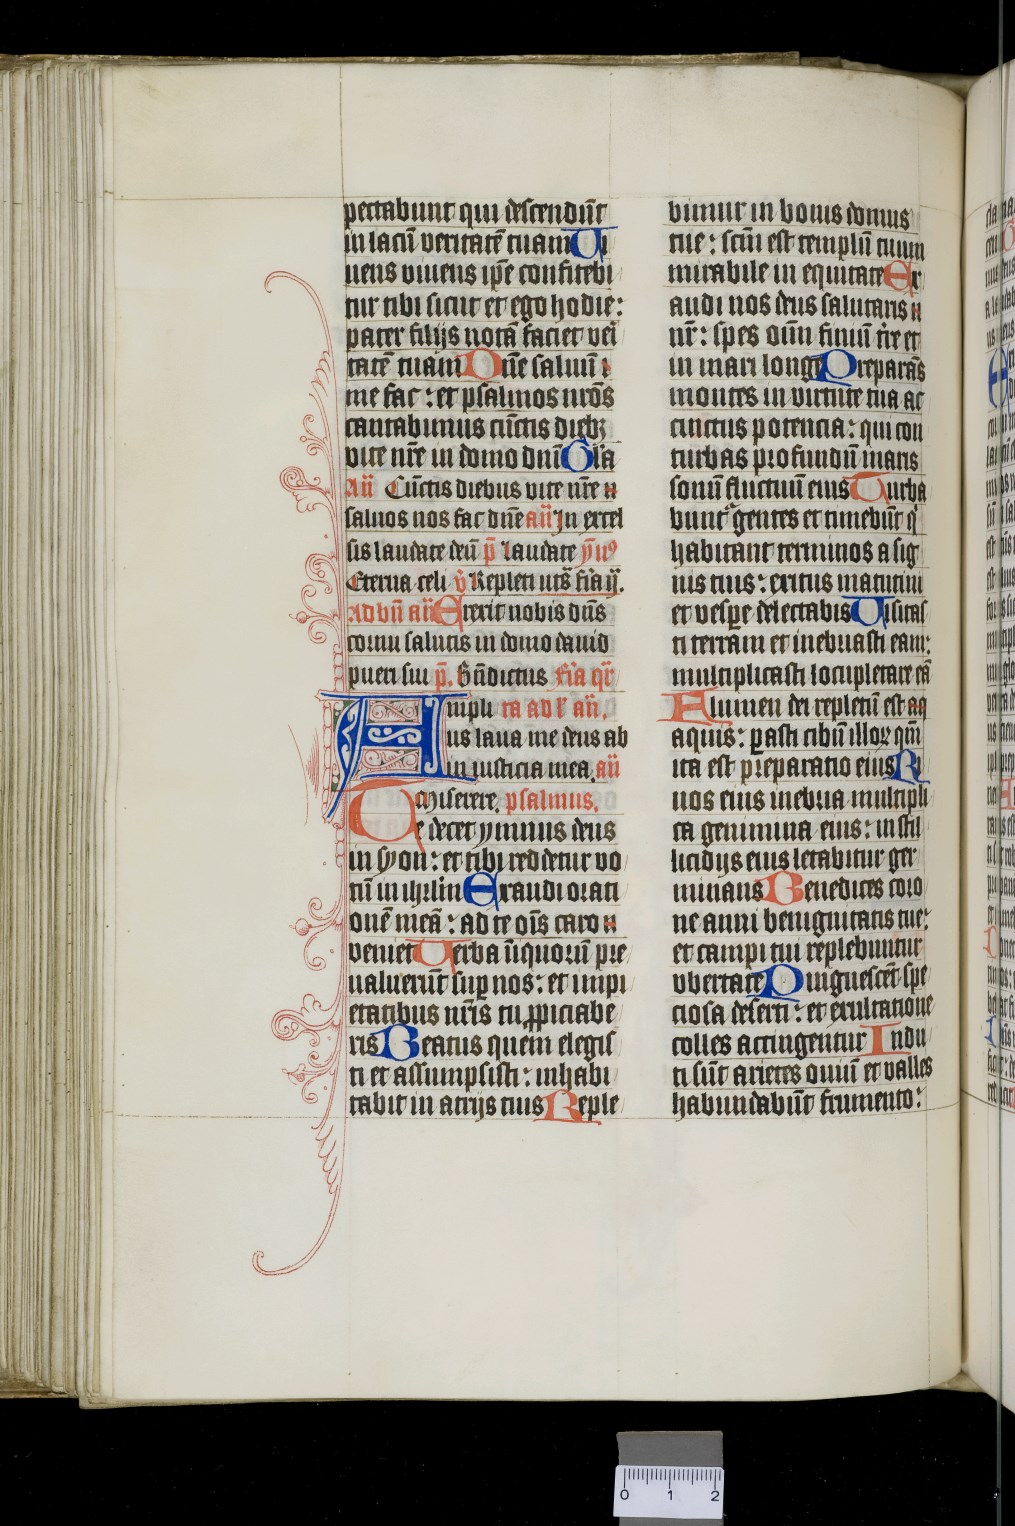 pectabunt qui descendūt
in lacū veritatē tuam Ui
uens viuens ip̄e confitebi
tur tibi sicut et ego hodie :
pater filijs notā faciet veri
tatē tuam Dn̄e saluū
me fac : et psalmos nr̄os
cantabimus cūctis dieb;
vite nr̄e in domo dn̄i Gl̄a
an̄ Cūctis diebus vite nr̄e
saluos nos fac dn̄e an̄ In excel
sis laudate deū p̄ Laudate
Eterna celi v̄ Repleti
Ad bn̄ an̄ Erexit nobis dn̄s
cornu salutis in domo dauid
pueri sui p̄. Bn̄dictus
Ampli
us laua me deus ab
in iusticia mea. an̄
Miserere. psalmus.
Te decet ymnus deus
in syon : et tibi reddetur vo
tū in ihrl̄m Exaudi orati
onē meā : ad te om̄is caro
veniet Uerba īiquorū pre
ualuerūt sup nos : et impi
etatibus nr̄is tu ppiciabe
ris Beatus quem elegis
ti et assumpsisti : inhabi
tabit in atrijs tuis Reple
bimur in bonis domus
tue : scm̄ est templū tuum
mirabile in equitate Ex
audi nos deus salutaris
nr̄ : spes oīm finiū tr̄e et
in mari longe Preparās
montes in virtute tua ac
cinctus potencia : qui con
turbas profundū maris
sonū fluctuū eius Turba
bunt gentes et timebūt q̄
habitant terminos a sig
nis tuis : exitus matutini
et vespe delectabis Uisitas
ti terram et inebriasti eam :
multiplicasti locupletare eā
Flumen dei repletū est aq
aquis : parasti cibū illoꝝ qm̄
ita est preparatio eius Ri
uos eius inebria multipli
ca genimina eius : in stil
licidijs eius letabitur ger
minans Benedices coro
ne anni benignitatis tue :
et campi tui replebuntur
vbertate Pinguescēt spe
ciosa deserti : et exultatione
colles accingentur Indu
ti sūt arietes ouiū et valles
habundabūt frumento :
0 1 2